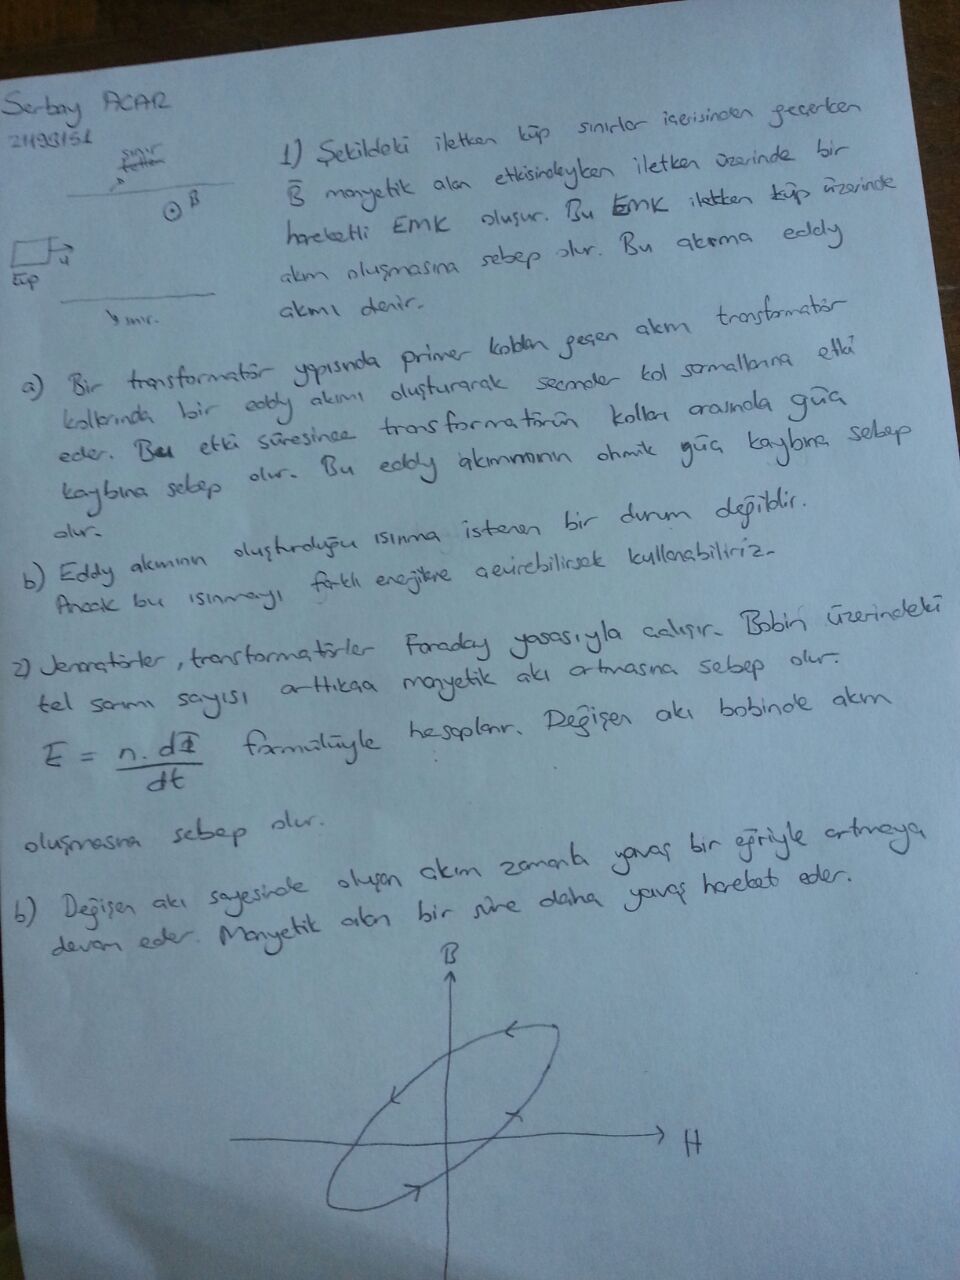 Serbay ACAR
21493151
sınır
B
küp
u
sınır.
1) Şekildeki iletken küp sınırlar içerisinden geçerken
B manyetik alan etkisindeyken iletken üzerinde bir
hareketli EMK oluşur. Bu EMK iletken küp üzerinde
akım oluşmasına sebep olur. Bu akıma eddy
akımı denir.
a) Bir transformatör yapısında primer koldan geçen akım transformatör
kollarında bir eddy akımı oluşturarak sekonder kol sarmallarına etki
eder. Bu etki süresince transformatörün kolları arasında güç
kaybına sebep olur. Bu eddy akımınının ohmik güç kaybına sebep
olur.
b) Eddy akımının oluşturduğu ısınma istenen bir durum değildir.
Ancak bu ısınmayı farklı enerjilere çevirebilirsek kullanabiliriz.
2) Jenaratörler, transformatörler Faraday yasasıyla çalışır. Bobin üzerindeki
tel sarım sayısı arttıkça manyetik akı artmasına sebep olur.
E = n. dΦ / dt formülüyle hesaplanır. Değişen akı bobinde akım
oluşmasına sebep olur.
b) Değişen akı sayesinde oluşan akım zamanla yavaş bir eğriyle artmaya
devam eder. Manyetik alan bir süre daha yavaş hareket eder.
B
H